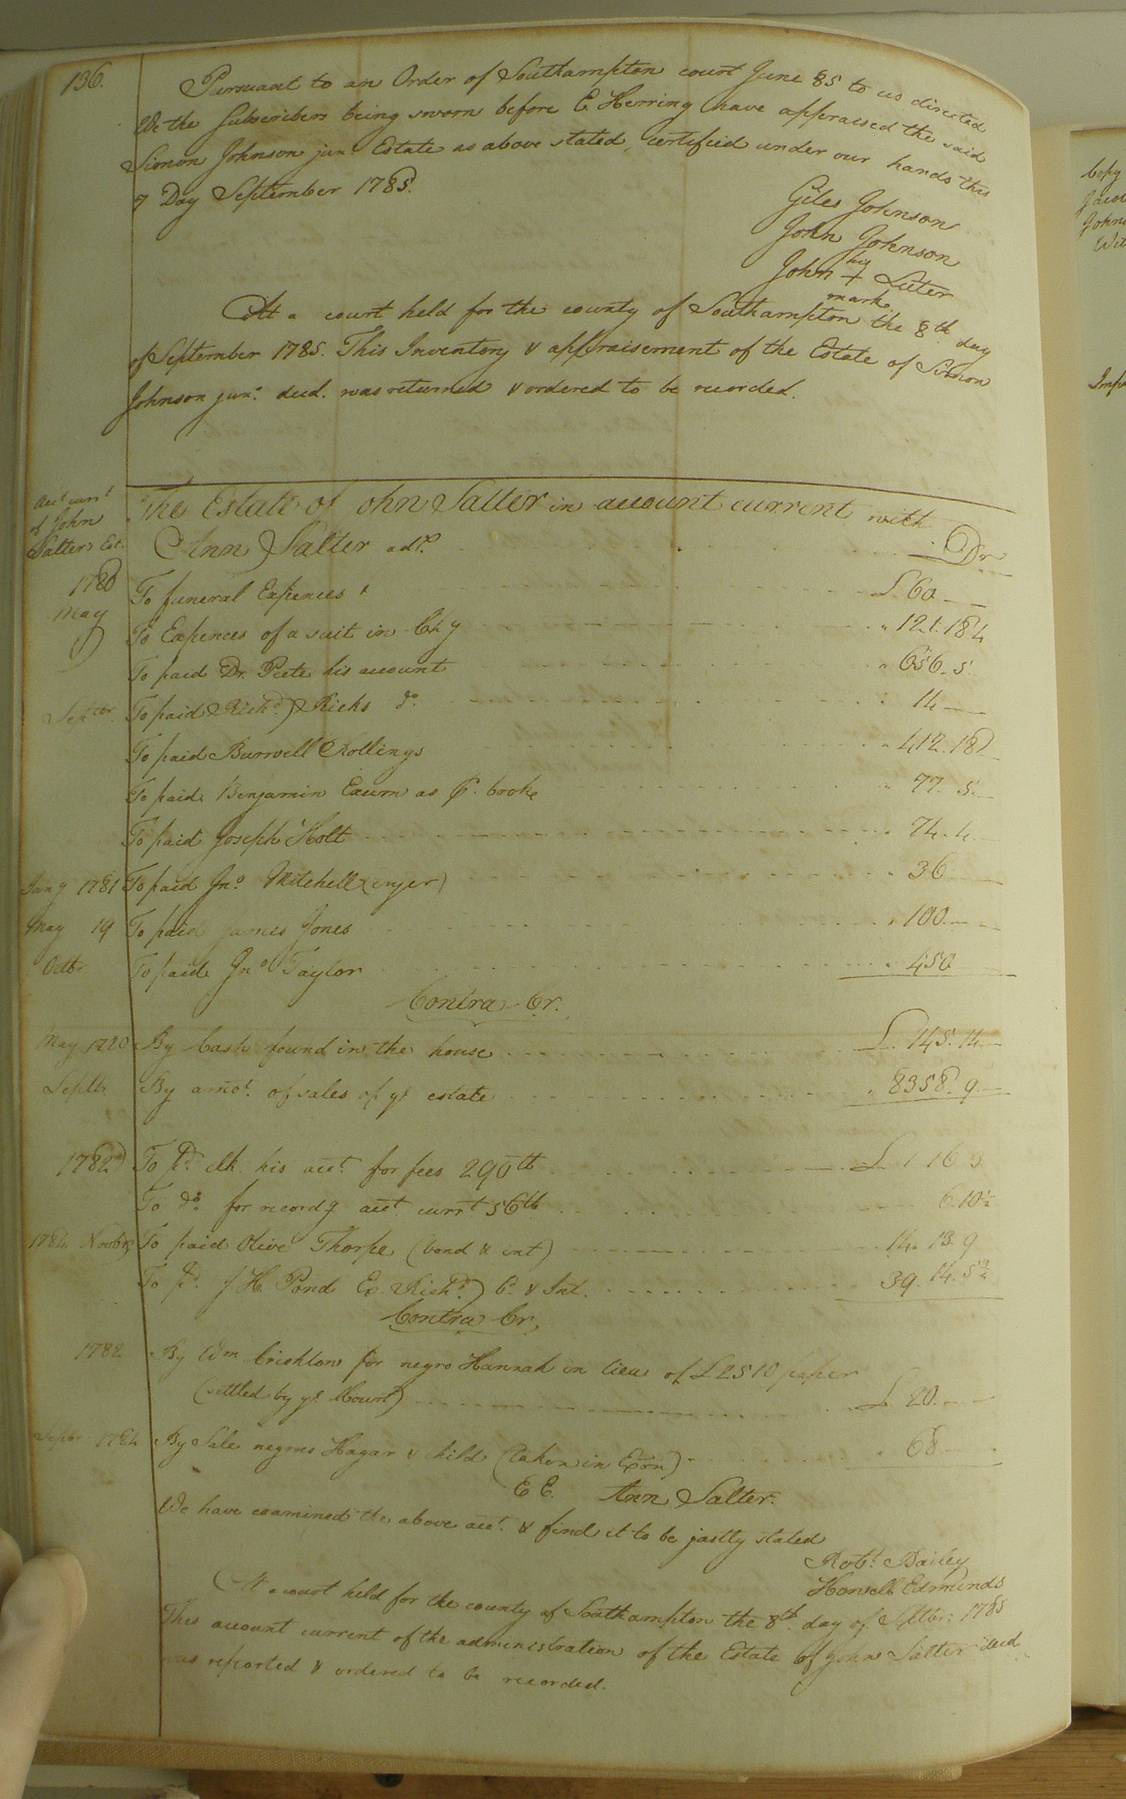 136.
Pursuant to an Order of Southampton court June 85 to us directed
We the Subscribers being sworn before E Herring have appraised the said
Simon Johnson junr Estate as above stated, certified under our hands this
7 Day September 1785.
Giles Johnson
John Johnson
his
John + Luter
mark
At a court held for the county of Southampton the 8th day
of September 1785. This Inventory & appraisement of the Estate of Simon
Johnson junr. decd. was returned & ordered to be recorded.
Acct currt
of John
Salters Est.
The Estate of ohn Salter in account current with
Ann Salter adx. Dr
1780
May
To funeral Expences £ 60
To Expences of a suit in Chy 121.18.4
To paid Dr. Peete his account 656.5
Septer To paid Richd Ricks do. 14
To paid Burwell Rollings 412.18
To paid Benjamin Exum as P. broke 77.5
To paid Joseph Holt 74.4
Jany 1781 To paid Jno Mitchell 36
May 19 To paid James Jones 100
Octbr To paid Jno Taylor 450
Contra Cr.
May 1780 By Cash found in the house £ 145.14
Septbr By amot. of sales of ye estate 8358.9
1782 To pd clk. his acct. for fees 290th £ 1 16 3
To do. for recordg acct currt 56th 6.10½
1784 Novbr To paid Olive Thorpe (bond & int) 14.13.9
To pd. J H. Pond Ex. Richd 39.14.5¾
Contra Cr,
1782 By Wm Crichlow for negro Hannah in lieu of £2510 paper
(settled by ye Court) £ 20
Septbr 1784 By Sale negroes Hagar & child (taken in Exon) 68
E E. Ann Salter.
We have examined the above acct. & find it to be justly stated
Robt. Bailey
Howell Edmunds
At a court held for the county of Southampton the 8th day of Septbr: 1785
This account current of the administration of the Estate of John Salter decd
was reported & ordered to be recorded.
Copy